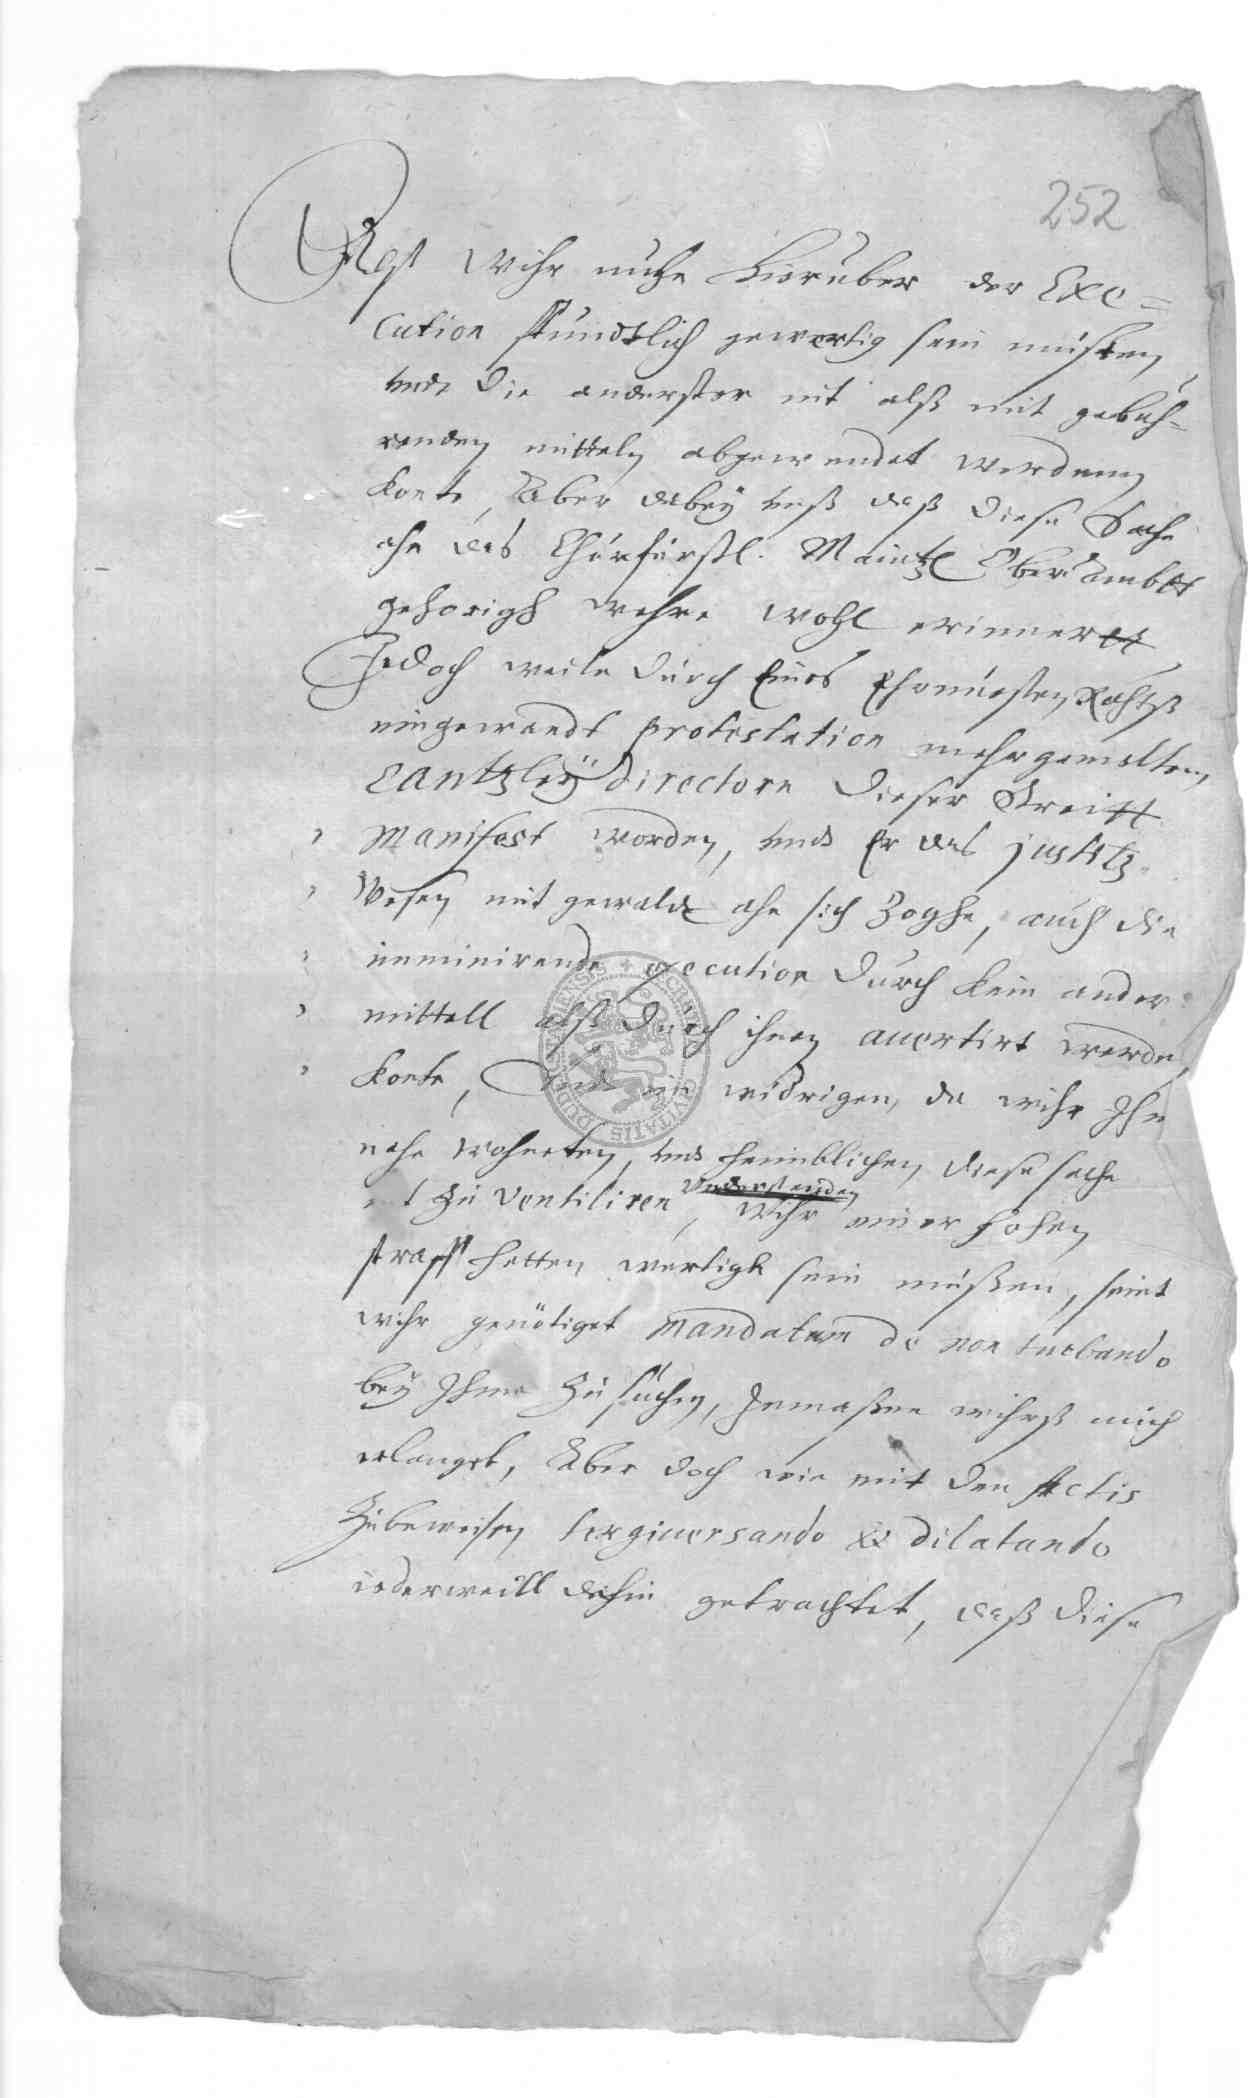 252
Ob wihr nuhn hierüber der Exe=
cution stündtlich gewertig sein müsten,
undt die anderster nit alß mit gebüh=
renden mitteln abgewendet werdenn
konte, Aber dabey unß daß diese Sache
ahn das Chürfürstl. Maintz. Ober Ambtt
gehörigh wehre wohl erinnertt
Jedoch weiln durch Eines Ehrnvesten Rahtß
eingewandt protestation mehrgemelten
Cantzley Directorn dieser Streitt
manifest worden, undt Er das justitz
Wesen mit gewaldt ahn sich Zoghe, auch die
imminirende execution durch kein ander
mittell alß durch ihnen avertirt werden
konte, Undt im widrigen, da wihr Ihn
nahe wohneten, undt heimblichen diese sache
Zu ventiliren understanden, wihr einer hohen
straff hetten wertigh sein müßen, seint
wihr genötiget mandatum de non turbando
bey Ihme Zu suchen, Inmaßen wihrß auch
erlanget, Aber doch wie mit den Actis
Zubeweisen tergiversando & dilatando
iederweill dahin getrachtet, daß diese
SIGILLUM CIVITATIS DUDERSTADIENSIS